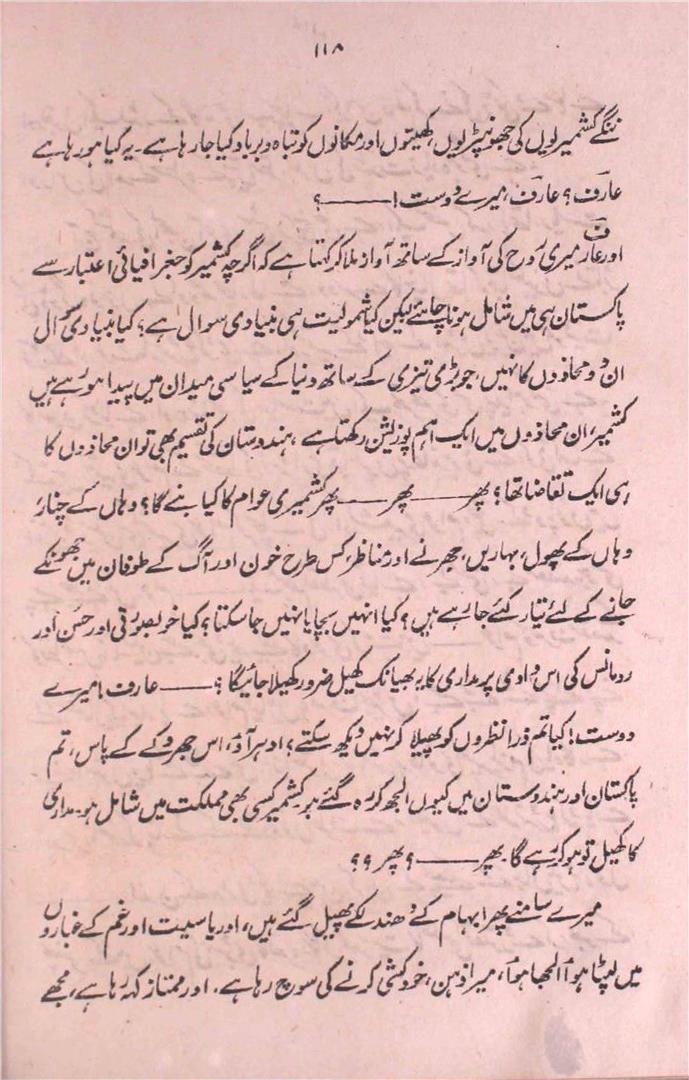 ۱۱۸
ننگے کشمیریوں کی جھونپڑیوں، کھیتوں اور مکانوں کو تباہ و برباد کیا جا رہا ہے۔ یہ کیا ہو رہا ہے
عارف؟ عارف، میرے دوست! ——— ؟
اور عارف میری روح کی آواز کے ساتھ آواز ملا کر کہتا ہے کہ اگرچہ کشمیر کو جغرافیائی اعتبار سے
پاکستان ہی میں شامل ہونا چاہئے لیکن کیا شمولیت ہی بنیادی سوال ہے؟ کیا بنیادی سوال
ان دو محاذوں کا نہیں، جو بڑی تیزی کے ساتھ دنیا کے سیاسی میدان میں پیدا ہو رہے ہیں
کشمیر، ان محاذوں میں ایک اہم پوزیشن رکھتا ہے، ہندوستان کی تقسیم بھی تو ان محاذوں کا
ہی ایک تقاضا تھا؟ پھر ——— پھر ——— پھر کشمیری عوام کا کیا بنے گا؟ وہاں کے چنار،
وہاں کے پھول، بہاریں، جھرنے اور مناظر، کس طرح خون اور آگ کے طوفان میں جھونکے
جانے کے لئے تیار کئے جا رہے ہیں؟ کیا انہیں بچایا نہیں جا سکتا؟ کیا خوبصورتی اور حسن اور
رومانس کی اس وادی پر مداری کا یہ بھیانک کھیل ضرور کھیلا جائیگا؟ ——— عارف! میرے
دوست! کیا تم ذرا نظروں کو پھیلا کر نہیں دیکھ سکتے؟ ادہر آؤ، اس جھروکے کے پاس، تم
پاکستان اور ہندوستان میں کیوں الجھ کر رہ گئے ہو کشمیر کسی بھی مملکت میں شامل ہو۔ مداری
کا کھیل تو ہو کر رہے گا۔ پھر ——— ؟ پھر ؟؟
میرے سامنے پھر ابہام کے دھندلکے پھیل گئے ہیں، اور یاسیت اور غم کے غباروں
میں لپٹا ہوا الجھا ہوا، میرا ذہن، خودکشی کرنے کی سوچ رہا ہے۔ اور ممتاز کہہ رہا ہے، مجھے